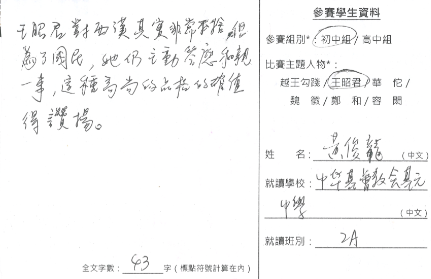 王昭君對西漢真實非常不捨,但
為了國民,她仍主動答應和親
一事,這種高尚的品格的確值
得讚揚。
全文字數:43 字(標點符號計算在內)
參賽學生資料
參賽組別*:初中組/高中組
比賽主題人物*:
越王勾踐/王昭君/華佗/
魏徵/鄭和/容閎
姓名:黃俊龍(中文)
就讀學校:中華基督教會基元
中學(中文)
就讀班別:2A